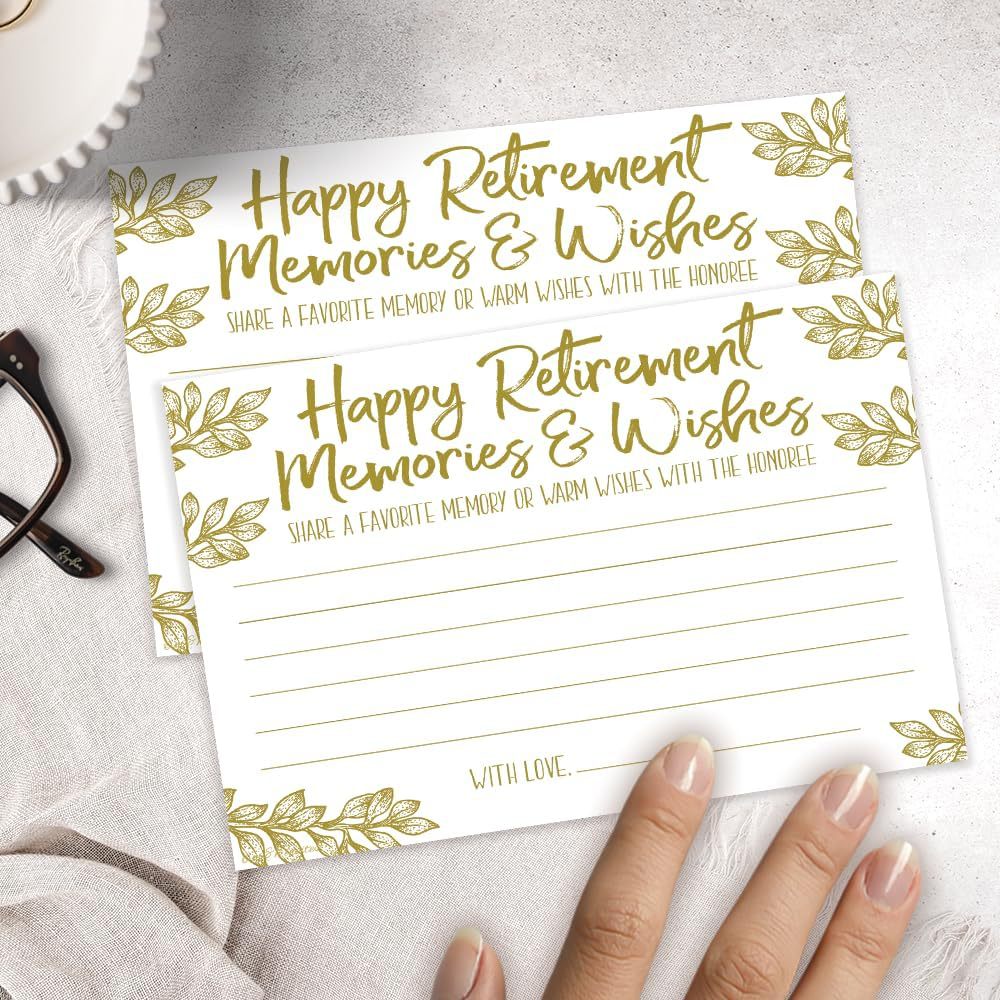 Happy Retirement
Memories & Wishes
SHARE A FAVORITE MEMORY OR WARM WISHES WITH THE HONOREE
Happy Retirement
Memories & Wishes
SHARE A FAVORITE MEMORY OR WARM WISHES WITH THE HONOREE
WITH LOVE,
Ray-Ban